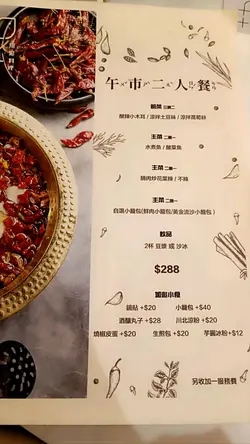 午市二人餐
前菜 三選二
酸辣小木耳 / 涼拌土豆絲 / 涼拌萵筍絲
主菜 二選一
水煮魚 / 酸菜魚
主菜 二選一
腩肉炒花菜辣 / 不辣
主食 二選一
自選小籠包(鮮肉小籠包/黃金流沙小籠包)
飲品
2杯 豆漿 或 沙冰
$288
加配小食
鍋貼 +$20 小籠包 +$40
酒釀丸子 +$28 川北涼粉 +$20
燒椒皮蛋 +$20 生煎包 +$20 芋圓冰粉+$12
另收加一服務費